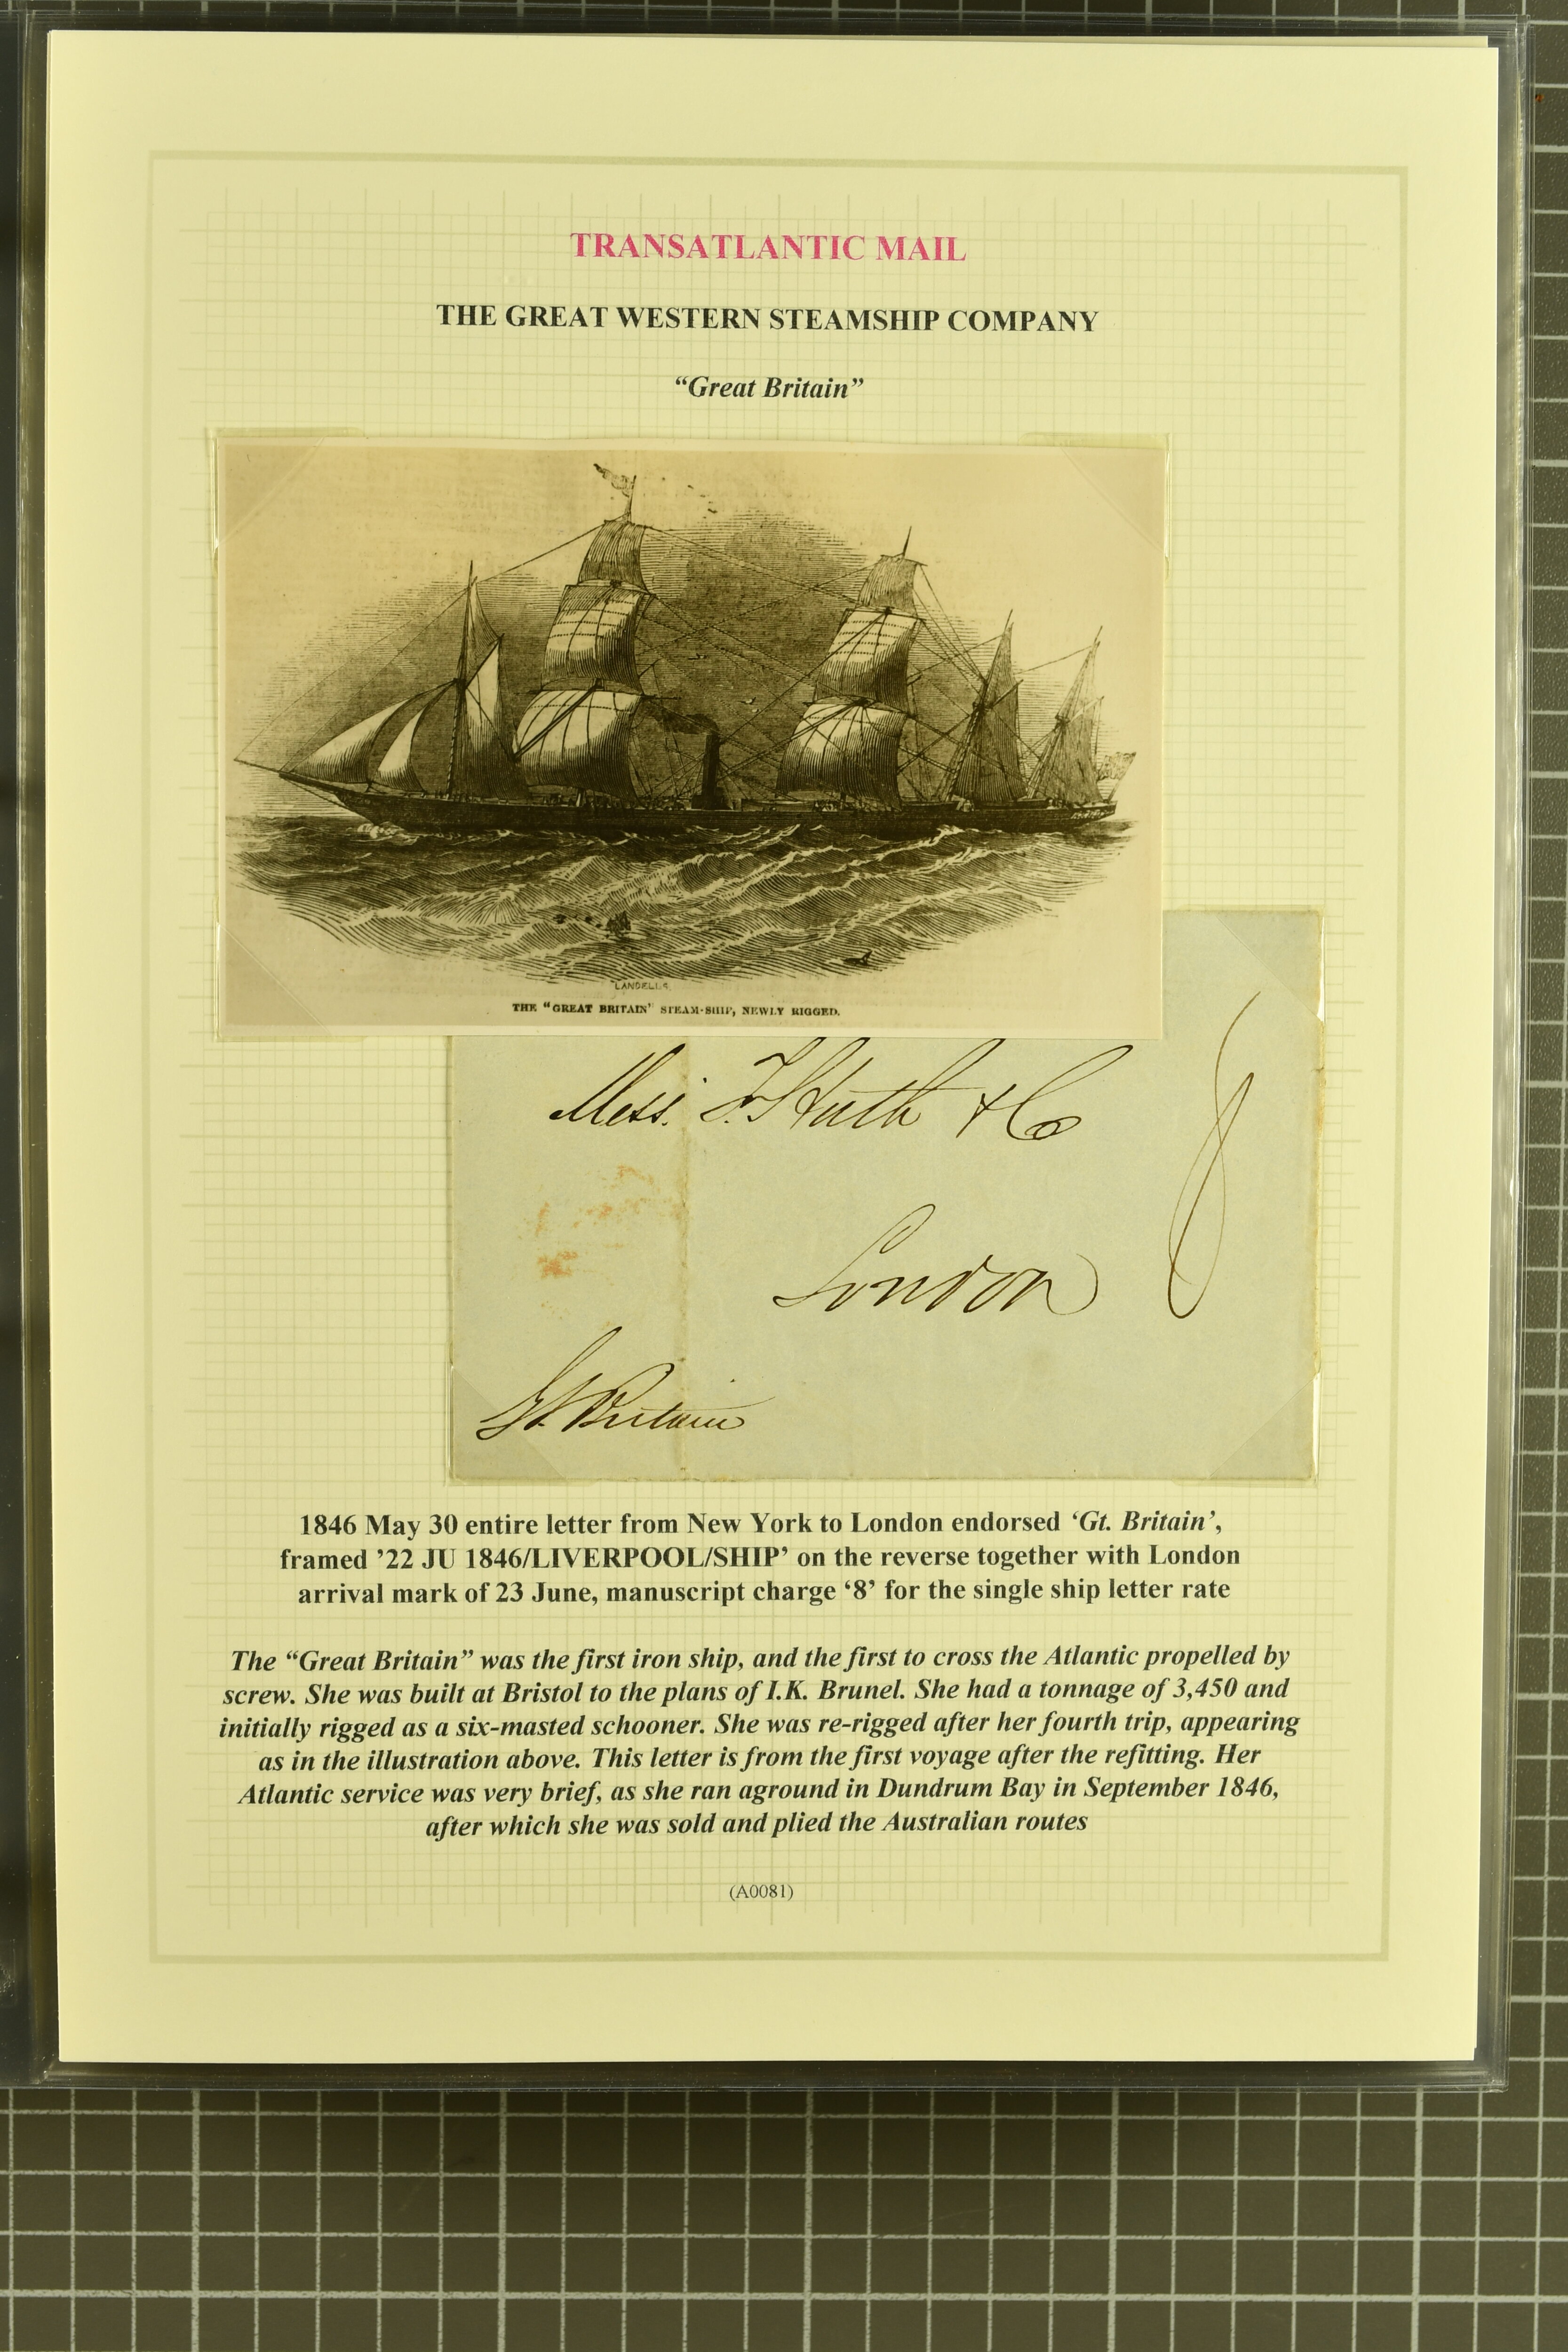 TRANSATLANTIC MAIL
THE GREAT WESTERN STEAMSHIP COMPANY
“Great Britain”
LANDELLS
THE “GREAT BRITAIN” STEAM-SHIP, NEWLY RIGGED.
Mess. F. Huth & Co
8
London
Gt. Britain
1846 May 30 entire letter from New York to London endorsed ‘Gt. Britain’,
framed ’22 JU 1846/LIVERPOOL/SHIP’ on the reverse together with London
arrival mark of 23 June, manuscript charge ‘8’ for the single ship letter rate
The “Great Britain” was the first iron ship, and the first to cross the Atlantic propelled by
screw. She was built at Bristol to the plans of I.K. Brunel. She had a tonnage of 3,450 and
initially rigged as a six-masted schooner. She was re-rigged after her fourth trip, appearing
as in the illustration above. This letter is from the first voyage after the refitting. Her
Atlantic service was very brief, as she ran aground in Dundrum Bay in September 1846,
after which she was sold and plied the Australian routes
(A0081)